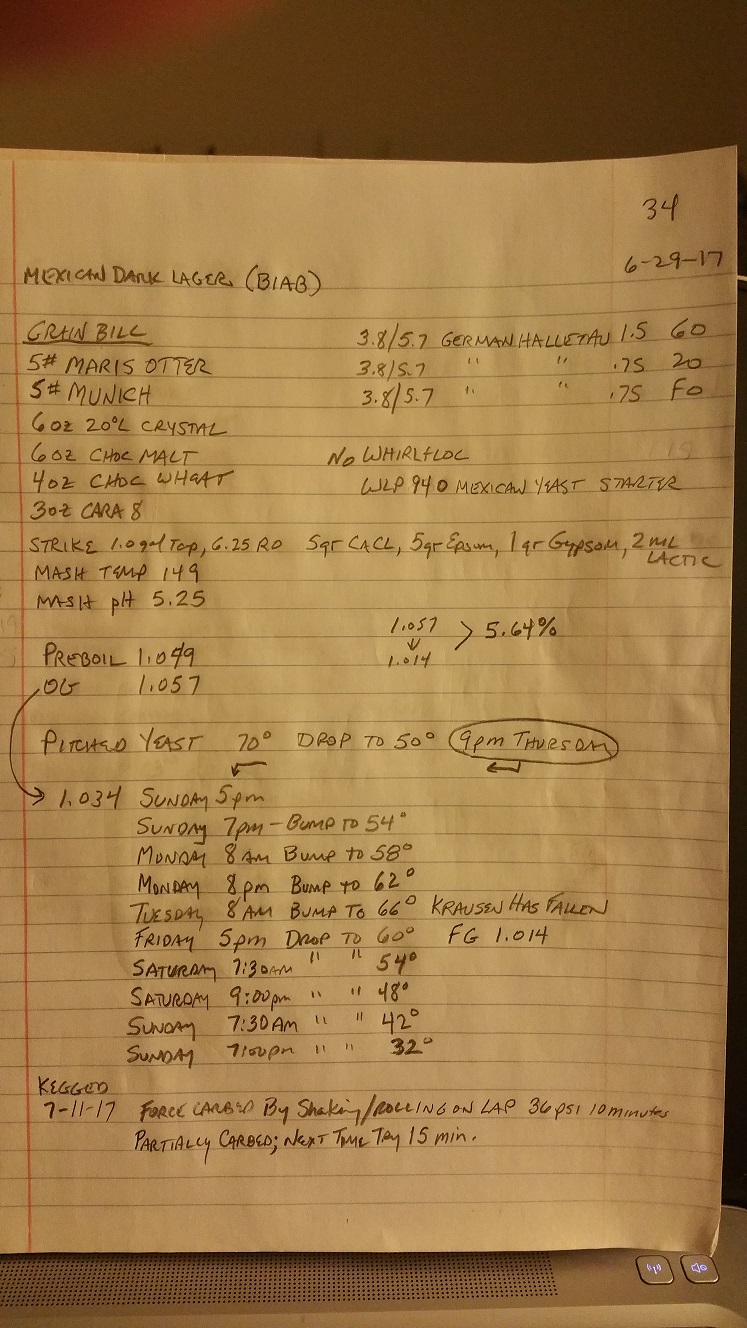 34
6-29-17
MEXICAN DARK LAGER (BIAB)
GRAIN BILL
5# MARIS OTTER
5# MUNICH
6oz 20°L CRYSTAL
6oz CHOC MALT
4oz CHOC WHEAT
3oz CARA 8
3.8/5.7 GERMAN HALLETAU 1.5 60
3.8/5.7 " " .75 20
3.8/5.7 " " .75 FO
NO WHIRLFLOC
WLP 940 MEXICAN YEAST STARTER
STRIKE 1.0 gal Tap, 6.25 RO 5gr CACL, 5gr Epsom, 1gr Gypsom, 2 mL LACTIC
MASH TEMP 149
MASH pH 5.25
1.057
↓
1.014
> 5.64%
PREBOIL 1.049
OG 1.057
PITCHED YEAST 70° DROP TO 50° 9pm THURSDAY
1.034 SUNDAY 5pm
SUNDAY 7pm - BUMP TO 54°
MONDAY 8 AM BUMP to 58°
MONDAY 8pm BUMP to 62°
TUESDAY 8 AM BUMP TO 66° KRAUSEN HAS FALLEN
FRIDAY 5pm DROP TO 60° FG 1.014
SATURDAY 7:30AM " " 54°
SATURDAY 9:00pm " " 48°
SUNDAY 7:30AM " " 42°
SUNDAY 7:00pm " " 32°
KEGGED
7-11-17 FORCE CARBED By Shaking/ROLLING ON LAP 36 PSI 10 minutes
PARTIALLY CARBED; NEXT TIME TRY 15 min.